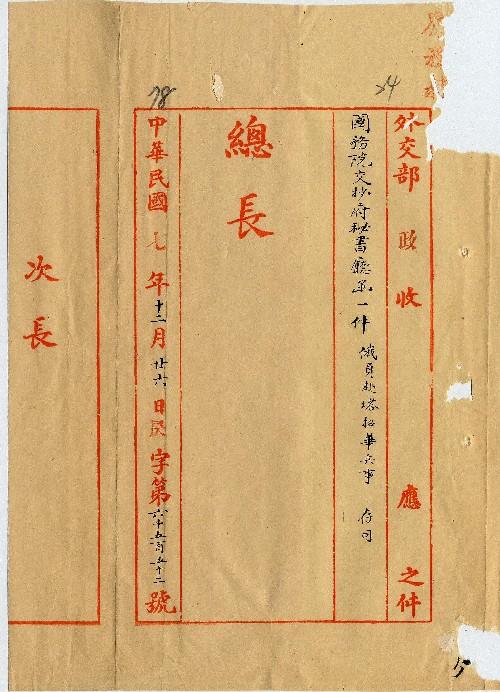 24
外交部 政 收 應 之件
國務院交抄府秘書廳函一件 俄員 華 事 存司
總長
78
中華民國七年十二月廿六日 字第六千五百五十二號
次長
5